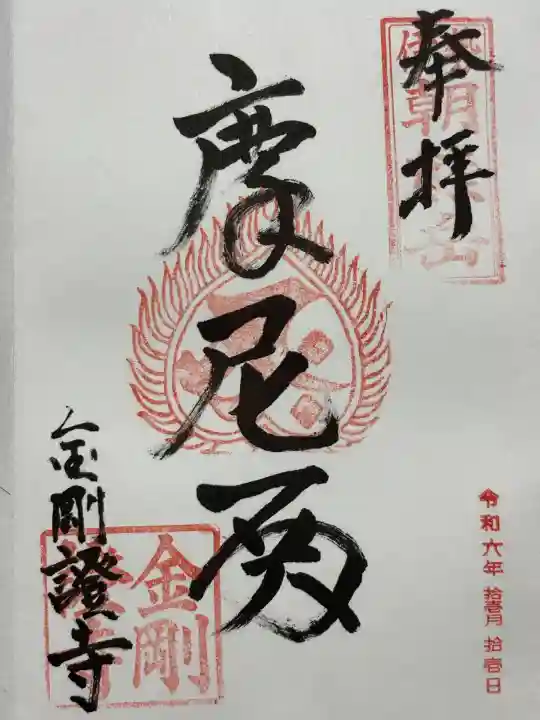 奉拝
伊勢朝熊岳
摩尼殿
金剛證寺
金剛證寺
令和六年 拾壱月 拾壱日